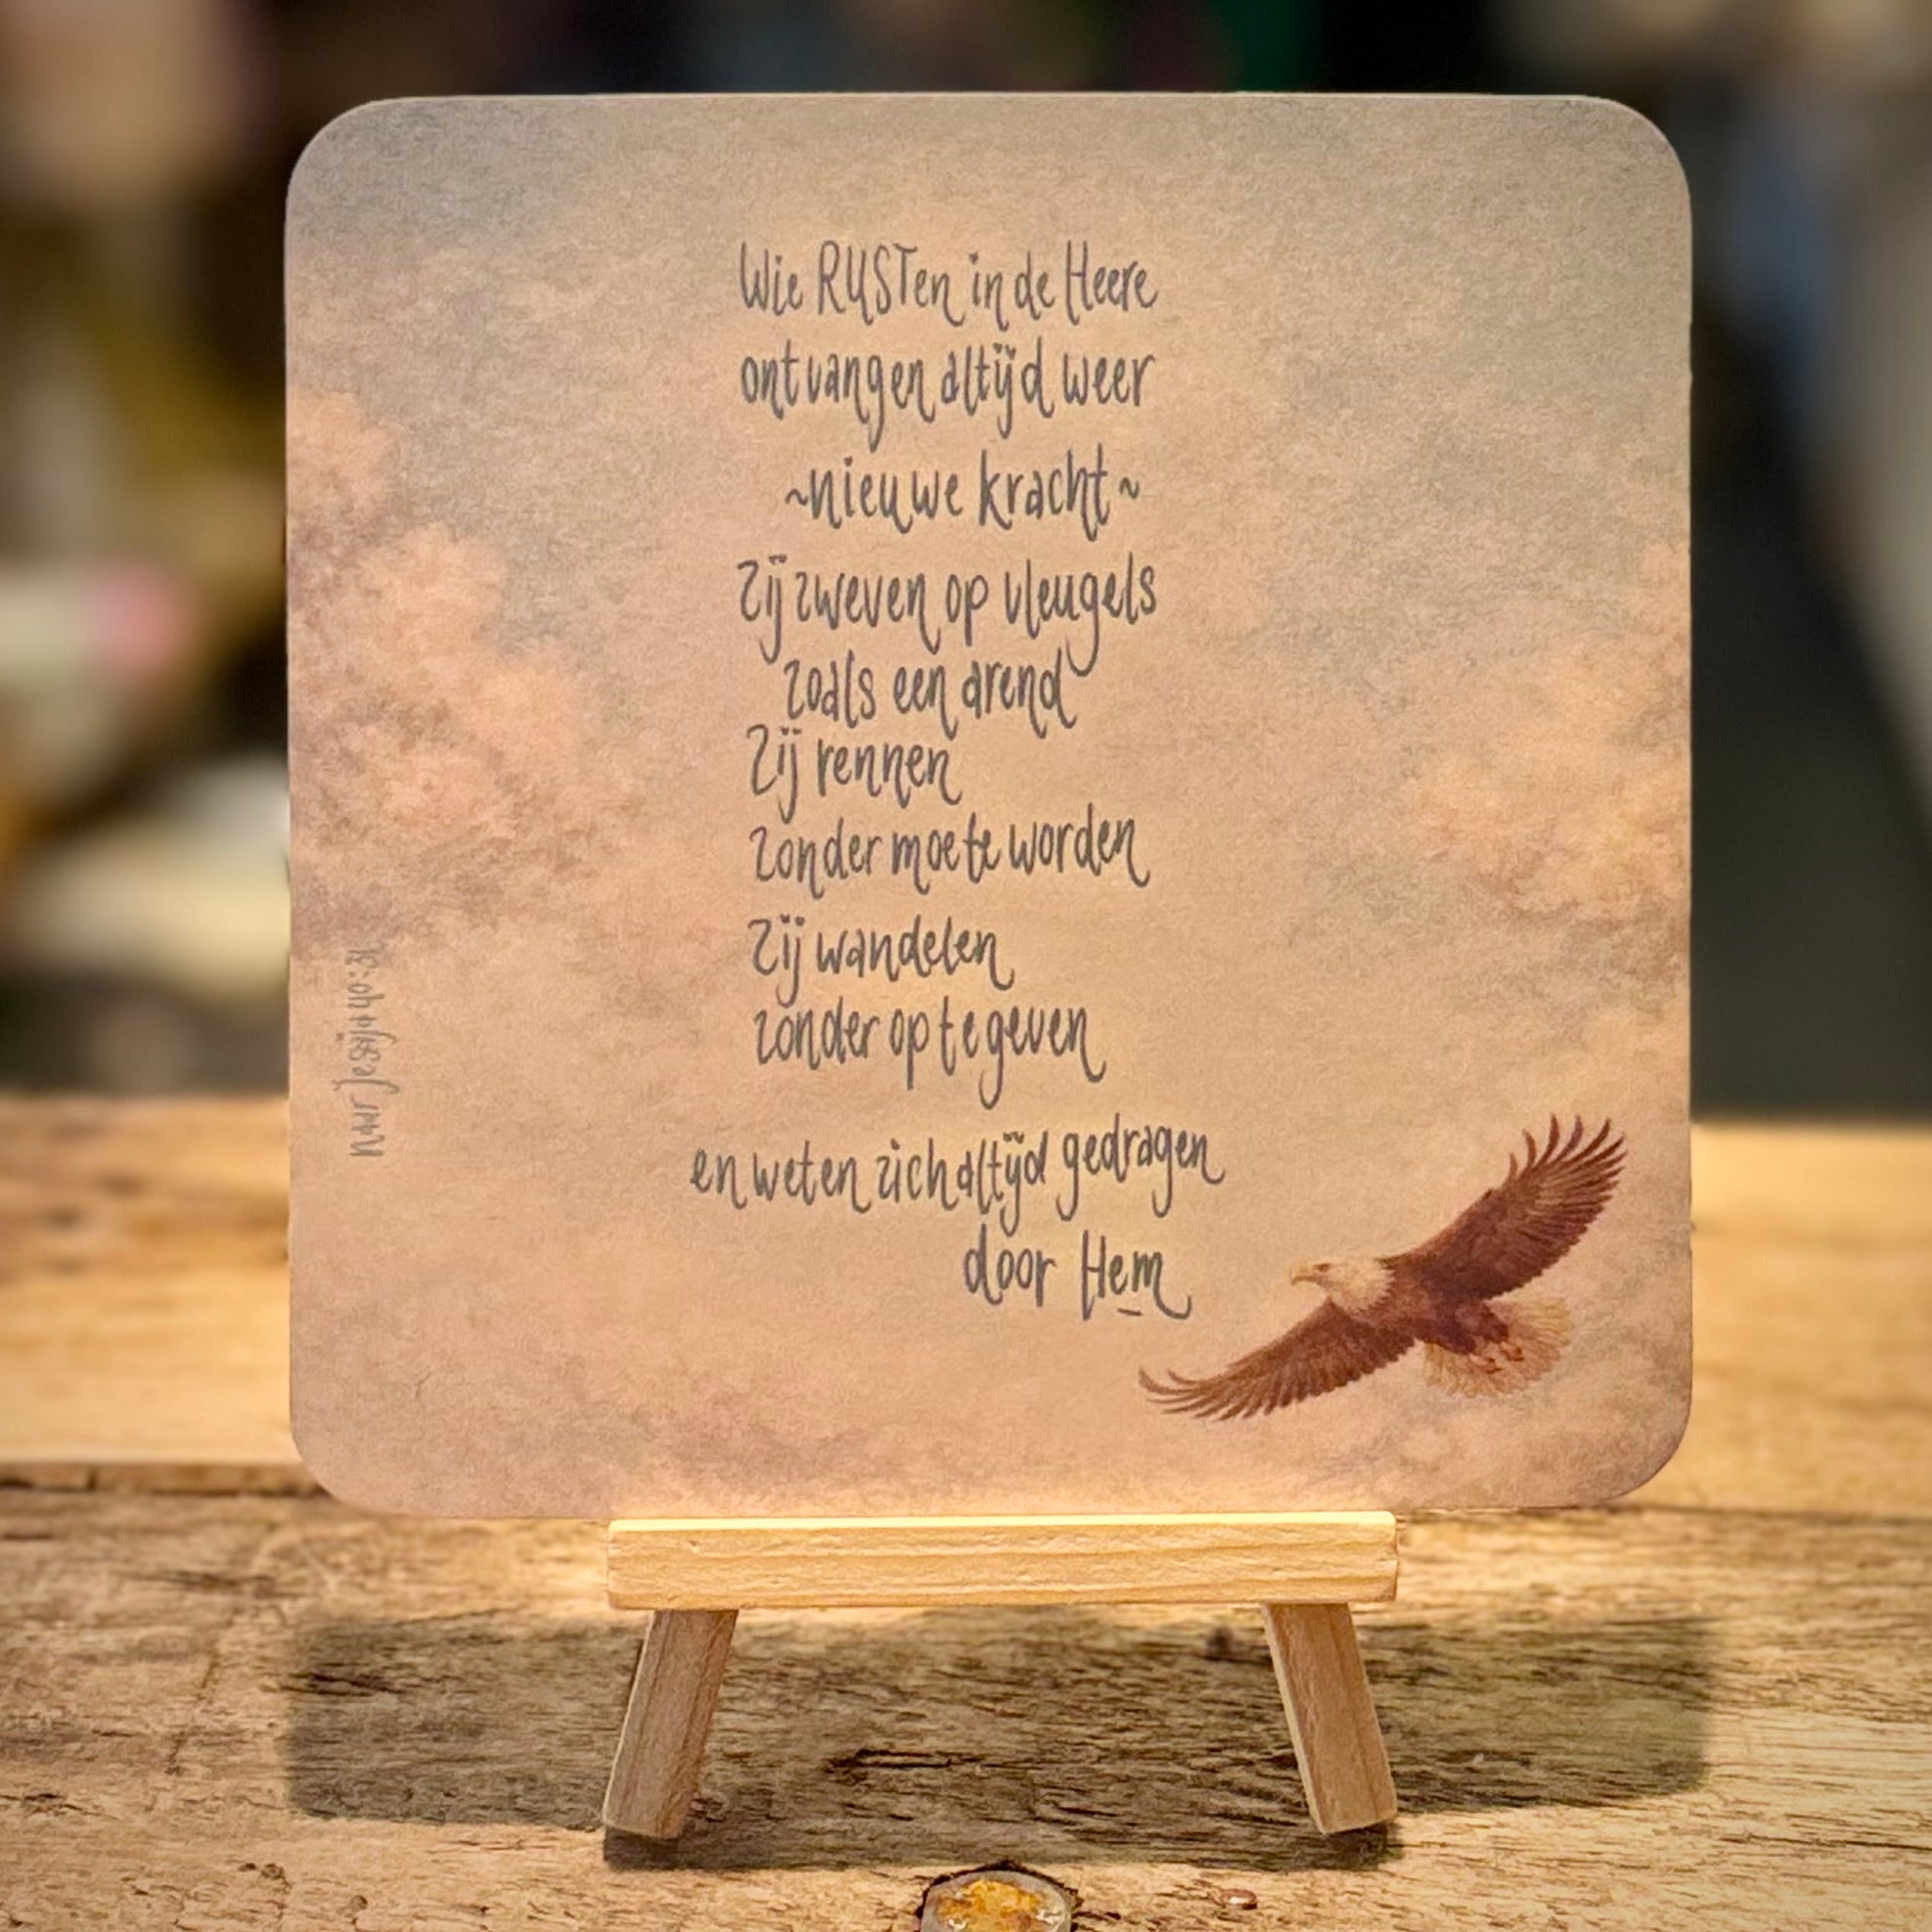 Wie RUSTen in de Heere
ontvangen altijd weer
~nieuwe kracht~
Zij zweven op vleugels
zoals een arend
Zij rennen
zonder moe te worden
Zij wandelen
zonder op te geven
en weten zich altijd gedragen
door Hem
naar Jesaja 40:31